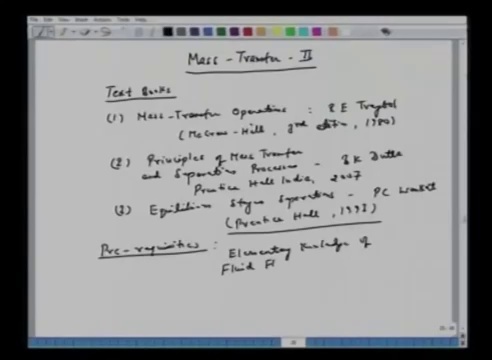 Mass - Transfer - II
Text Books
(1) Mass-Transfer Operations : R E Treybal
(McGraw-Hill, 3rd edition, 1980)
(2) Principles of Mass Transfer
and Separation Processes - B K Dutta
Prentice Hall India, 2007
(3) Equilibrium Stages Separations - PC Wankat
(Prentice Hall, 1993)
Pre-requisities : Elementary Knowledge of
Fluid Fl